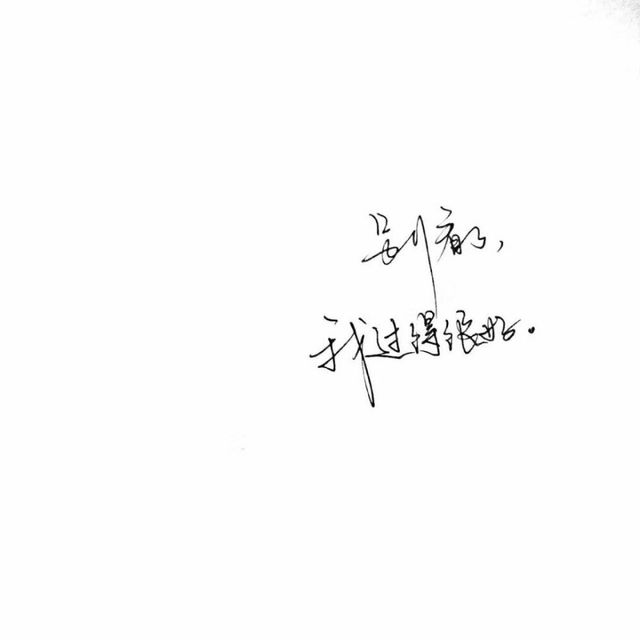 别看了，
我过得很好.